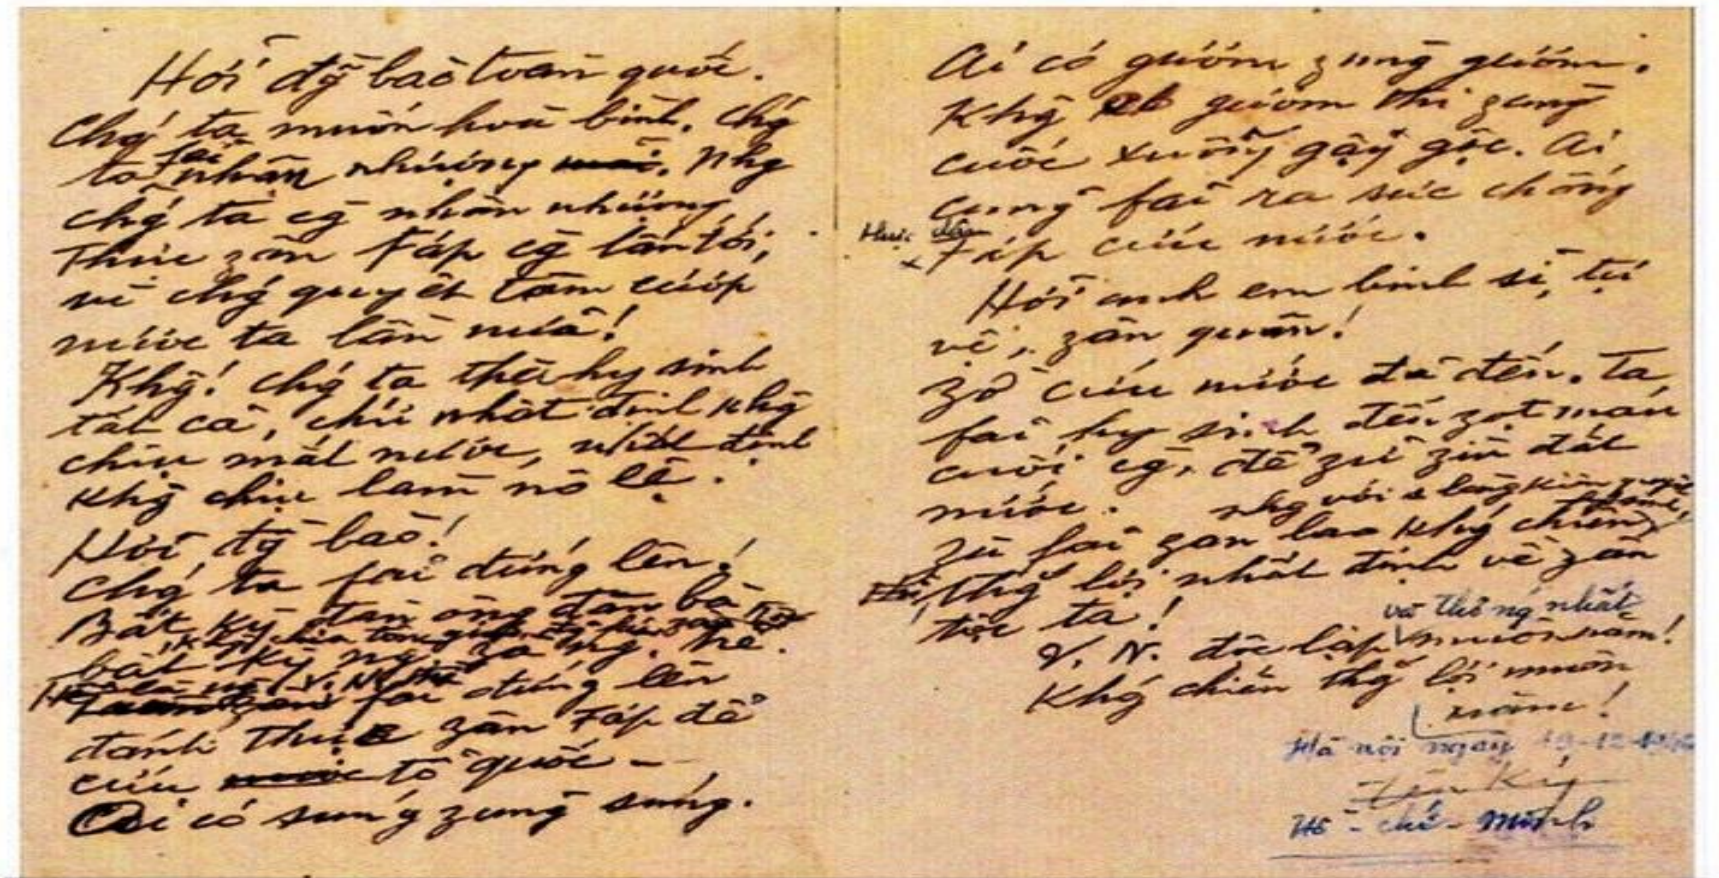 Hỡi đg̀ bào toàn quốc.
Chǵ ta muốn hoà bình. Chǵ
ta fải nhân nhượng. Nhg
chǵ ta cg̀ nhân nhượng
Thực zân Fáp cg̀ lấn tới,
vì chǵ quyết tâm cướp
nước ta lần nữa!
Khĝ! Chǵ ta thà hy sinh
tất cả, chứ nhất định khĝ
chịu mất nước, nhất định
khĝ chịu làm nô lệ.
Hỡi đg̀ bào!
Chǵ ta fải đứng lên!
Bất kỳ đàn ông đàn bà
bất kỳ ng. già ng. trẻ.
fải đứng lên
đánh thực zân Fáp để
cứu tổ quốc -
Ai có súng zùng súng.
Ai có gươm zùng gươm.
Khĝ có gươm thì zùng
cuốc xuổng gậy gộc. Ai
cũng fải ra sức chống
thực dân
Fáp cứu nước.
Hỡi anh em binh sĩ, tự
vệ, zân quân!
Zờ cứu nước đã đến. Ta
fải hy sinh đến zọt máu
cuối cg̀, để zữ zìn đất
nước. nhg với 1 lòng kiên quyết
Zù fải zan lao khǵ chiến,
thg̃ lợi nhất định về zân
tộc ta!
và thống nhất
V. N. độc lập muôn năm!
Khǵ chiến thg̃ lợi muôn
năm!
Hà nội ngày 19-12-1946
Hồ - chí - Minh